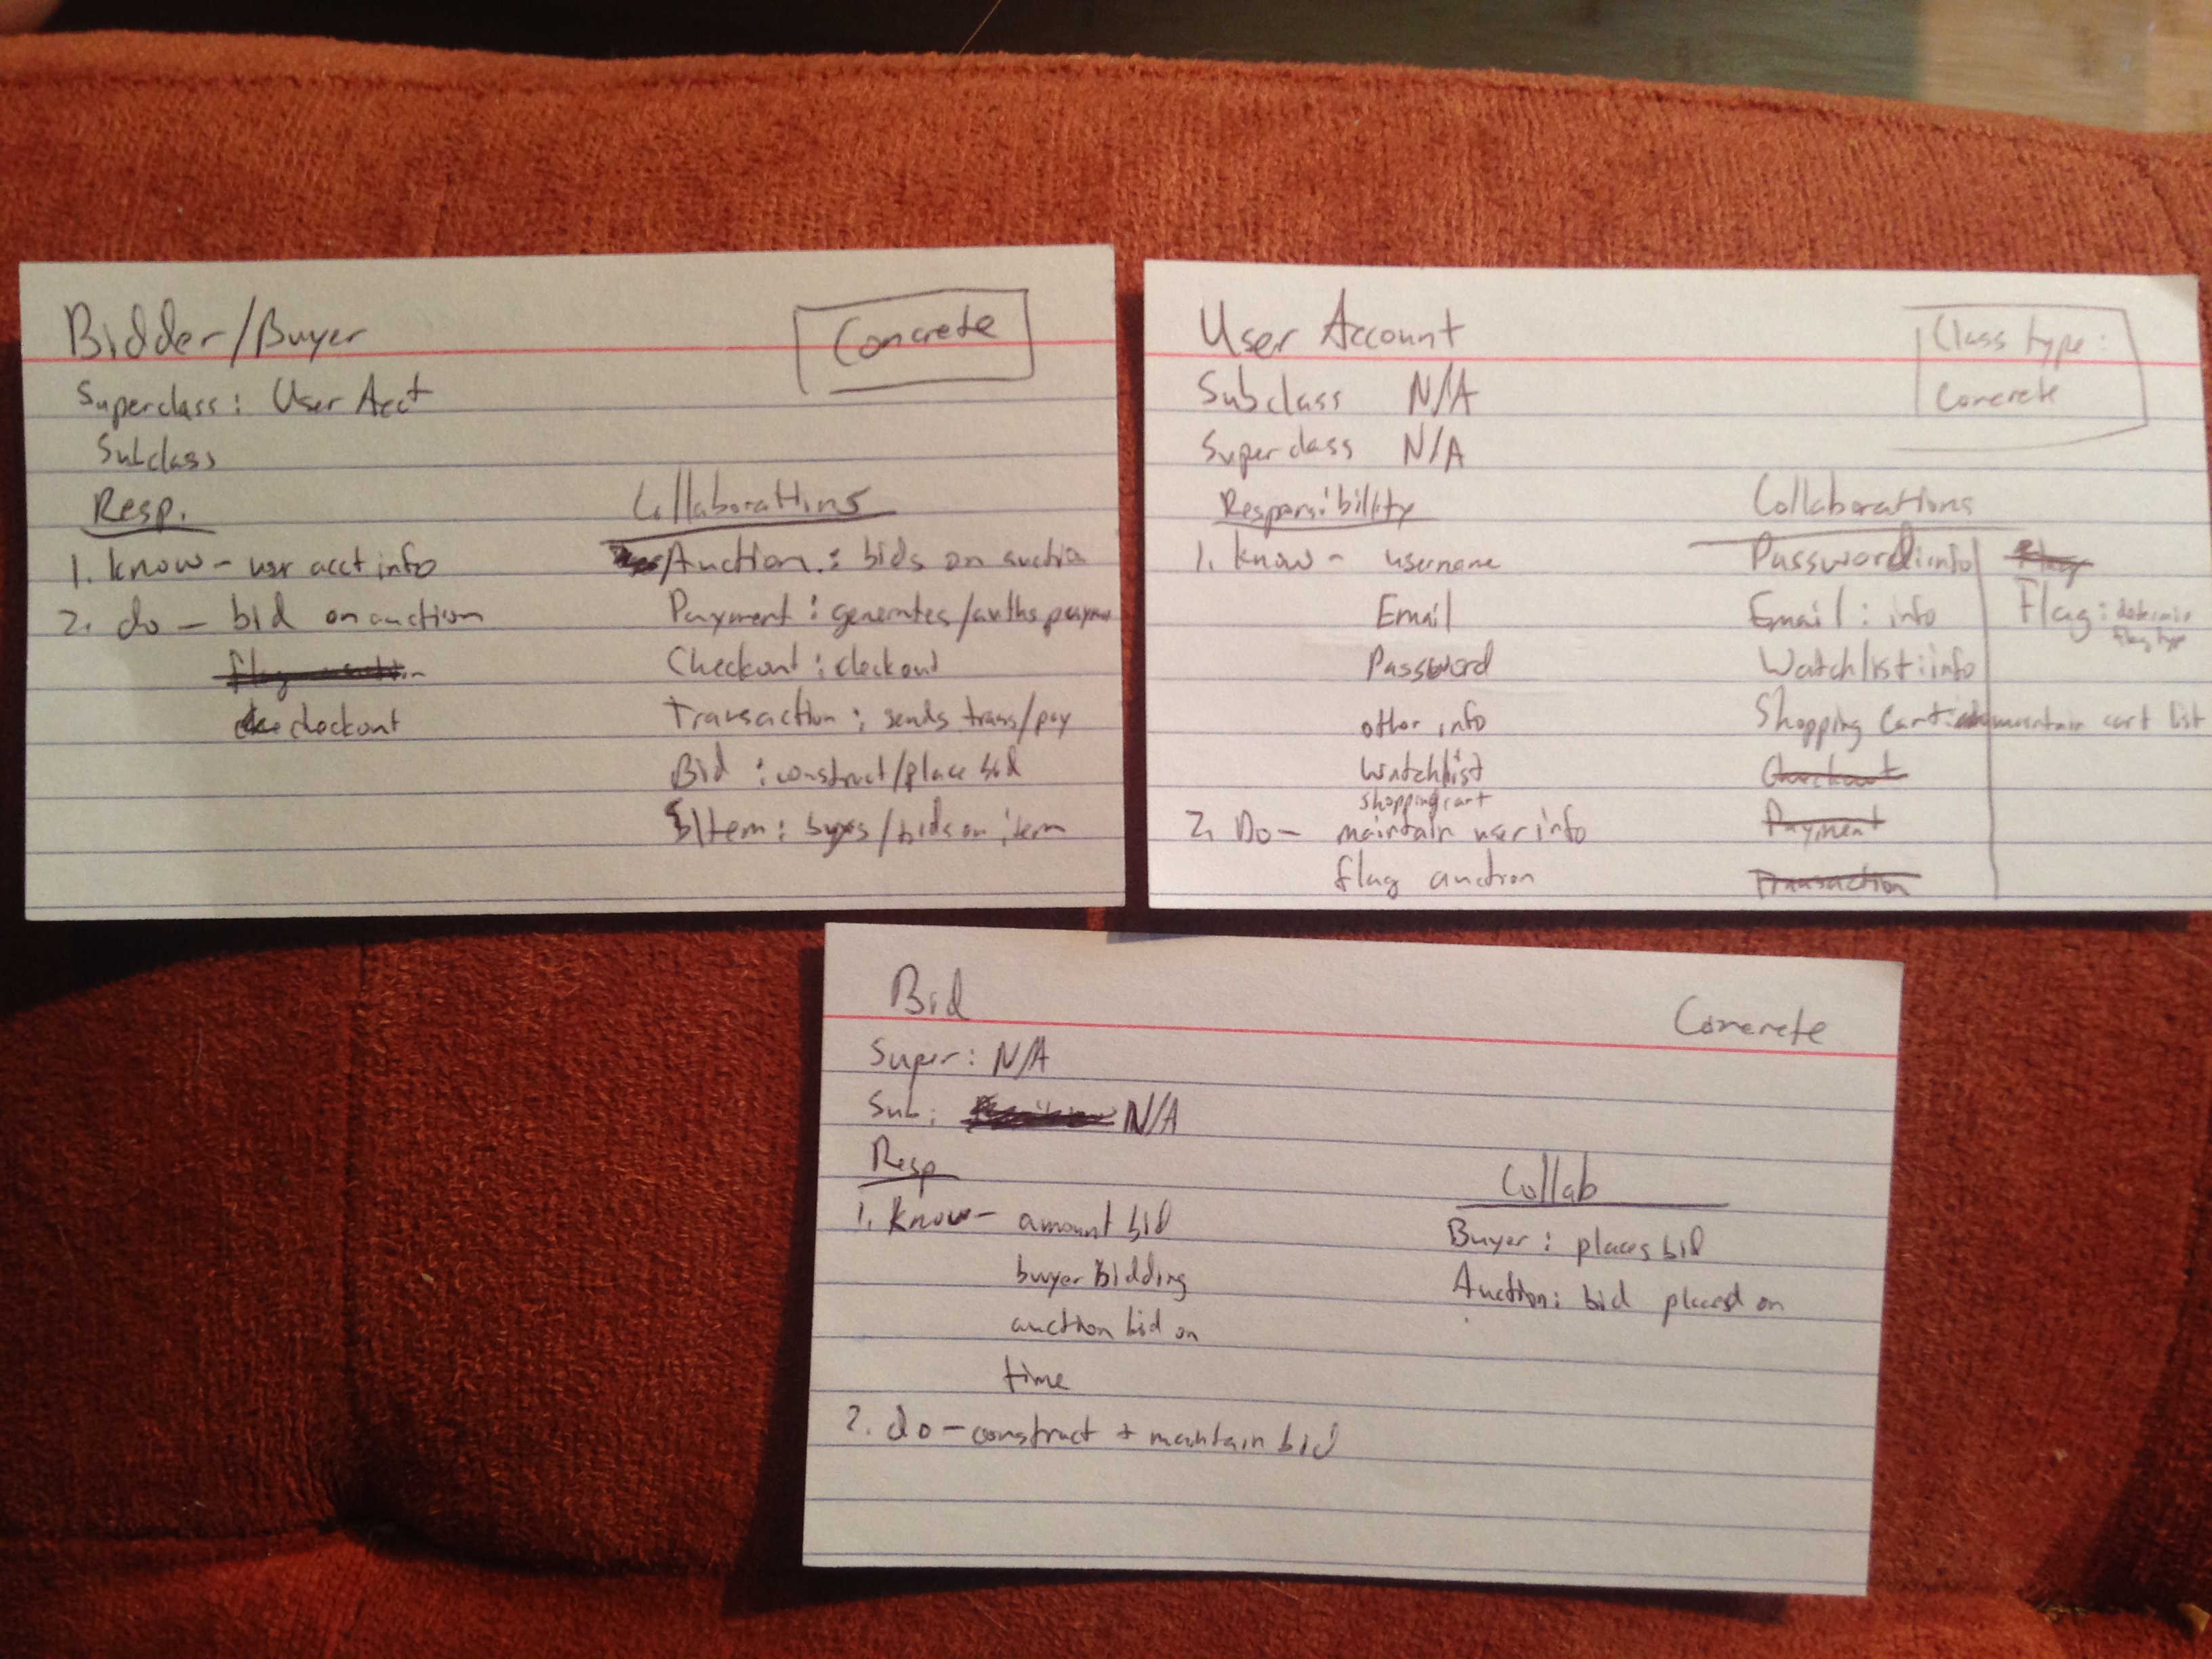 Bidder/Buyer
Concrete
Superclass: User Acct
Subclass
Resp.
1. know - user acct info
2. do - bid on auction
flag auction
checkout
Collaborations
Auction: bids on auction
Payment: generates/auths payment
Checkout: checkout
Transaction: sends trans/pay
Bid: construct/place bid
Item: buys/bids on item
User Account
Class type:
Concrete
Subclass N/A
Superclass N/A
Responsibility
1. know - username
Email
Password
other info
Watchlist
shopping cart
2. Do - maintain user info
flag auction
Collaborations
Password: info
Email: info
Watchlist: info
Shopping Cart: maintain cart list
Checkout
Payment
Transaction
Flag
Flag: determine
flag type
Bid
Concrete
Super: N/A
Sub: N/A
Resp
1. Know - amount bid
buyer bidding
auction bid on
time
2. do - construct + maintain bid
Collab
Buyer: places bid
Auction: bid placed on